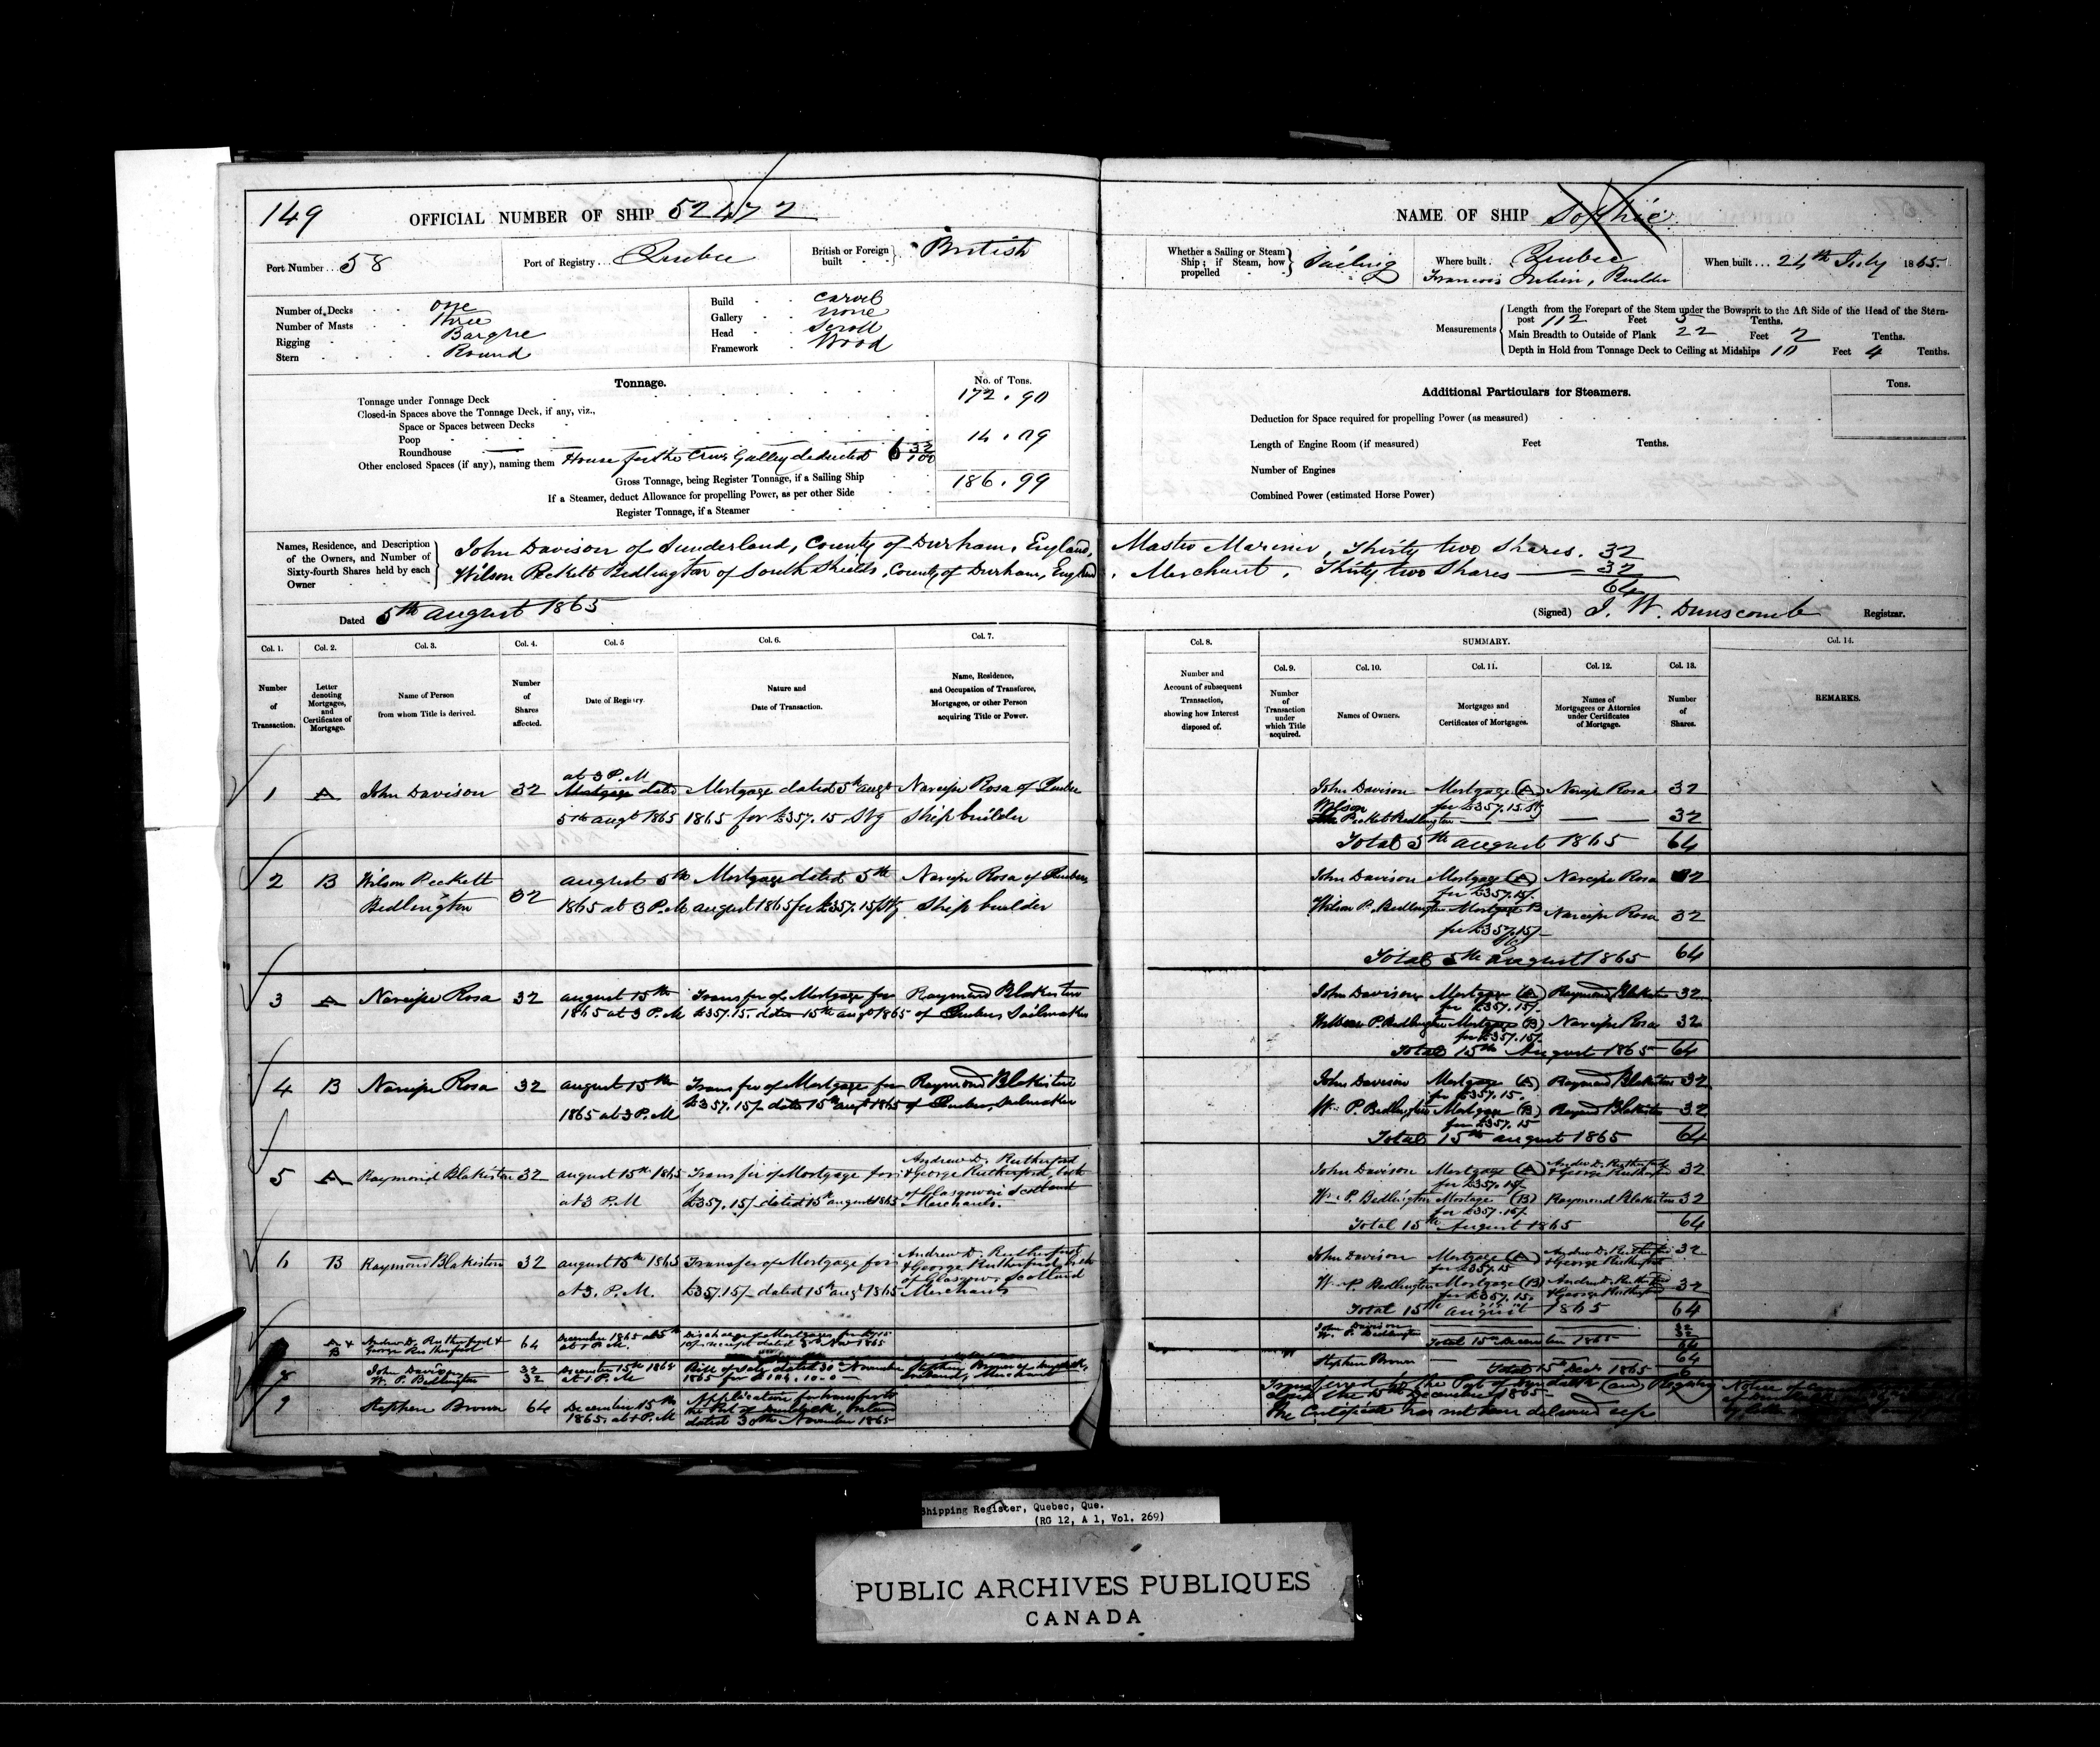 149
OFFICIAL NUMBER OF SHIP 52472
Port Number ... 58
Port of Registry ... Quebec
British or Foreign built } British
Number of Decks one
Number of Masts three
Rigging Barque
Stern Round
Build carvel
Gallery none
Head Scroll
Framework Wood
Tonnage.
No. of Tons.
Tonnage under Tonnage Deck 172.90
Closed-in Spaces above the Tonnage Deck, if any, viz.,
Space or Spaces between Decks
Poop 14.09
Roundhouse
Other enclosed Spaces (if any), naming them House for the Crew Galley deducted 6 32/100
Gross Tonnage, being Register Tonnage, if a Sailing Ship 186.99
If a Steamer, deduct Allowance for propelling Power, as per other Side
Register Tonnage, if a Steamer
NAME OF SHIP Sophie
Whether a Sailing or Steam Ship; if Steam, how propelled } Sailing
Where built. Quebec
Francois Julien, Builder
When built ... 24th July 1865.
Measurements
Length from the Forepart of the Stem under the Bowsprit to the Aft Side of the Head of the Stern-
post 112 Feet 5 Tenths.
Main Breadth to Outside of Plank 22 Feet 2 Tenths.
Depth in Hold from Tonnage Deck to Ceiling at Midships 10 Feet 4 Tenths.
Additional Particulars for Steamers.
Tons.
Deduction for Space required for propelling Power (as measured)
Length of Engine Room (if measured) Feet Tenths.
Number of Engines
Combined Power (estimated Horse Power)
Names, Residence, and Description of the Owners, and Number of Sixty-fourth Shares held by each Owner
John Davison of Sunderland, County of Durham, England, Master Mariner, Thirty two Shares. 32
Wilson Peckett Bedlington of South Shields, County of Durham, England, Merchant, Thirty two Shares 32
64
Dated 5th august 1865
(Signed) J. W. Dunscomb Registrar.
Col. 1. Col. 2. Col. 3. Col. 4. Col. 5 Col. 6. Col. 7.
Number of Transaction.
Letter denoting Mortgages, and Certificates of Mortgage.
Name of Person from whom Title is derived.
Number of Shares affected.
Date of Registry.
Nature and Date of Transaction.
Name, Residence, and Occupation of Transferee, Mortgagee, or other Person acquiring Title or Power.
Col. 8. SUMMARY. Col. 14.
Col. 9. Col. 10. Col. 11. Col. 12. Col. 13.
Number and Account of subsequent Transaction, showing how Interest disposed of.
Number of Transaction under which Title acquired.
Names of Owners.
Mortgages and Certificates of Mortgages.
Names of Mortgagees or Attornies under Certificates of Mortgage.
Number of Shares.
REMARKS.
at 3 P.M
1 A John Davison 32 Mortgage dated Mortgage dated 5th augt Narcisse Rosa of Quebec
5th augt 1865 1865 for £357.15 Stg Ship builder
John Davison Mortgage (A) Narcisse Rosa 32
for £357.15 Stg
Wilson Peckett Bedlington 32
Total 5th august 1865 64
2 B Wilson Peckett 32 august 5th Mortgage dated 5th Narcisse Rosa of Quebec
Bedlington 1865 at 3 P.M august 1865 for £357.15/Stg Ship builder
John Davison Mortgage (A) Narcisse Rosa 32
for £357.15/
Wilson P. Bedlington Mortgage B Narcisse Rosa 32
for £357.15/
Total 5th august 1865 64
3 A Narcisse Rosa 32 august 15th Transfer of Mortgage for Raymond Blakiston
1865 at 3 P.M £357.15. dated 15th augt 1865 of Quebec Sailmaker
John Davison Mortgage (A) Raymond Blakiston 32
for £357.15/
P. Bedlington Mortgage (B) Narcisse Rosa 32
for £357.15/
Total 15th August 1865 64
4 B Narcisse Rosa 32 august 15th Transfer of Mortgage for Raymond Blakiston
1865 at 3 P.M £357.15/ dated 15th augt 1865 of Quebec, Sailmaker
John Davison Mortgage (A) Raymond Blakiston 32
for £357.15.
Wm P. Bedlington Mortgage (B) Raymond Blakiston 32
for £357.15
Total 15th august 1865 64
5 A Raymond Blakiston 32 august 15th 1865 Transfer of Mortgage for Andrew D. Rutherford
& George Rutherford, both
at 3 P.M £357.15/ dated 15th august 1865 of Glasgow in Scotland
Merchants.
John Davison Mortgage (A) Andrew D. Rutherford & George Rutherford 32
for £357.15/
Wm P. Bedlington Mortgage (B) Raymond Blakiston 32
for £357.15/.
Total 15th August 1865 64
6 B Raymond Blakiston 32 august 15th 1865 Transfer of Mortgage for Andrew D. Rutherford
& George Rutherford, both
at 3. P.M. £357.15/ dated 15th augt 1865 of Glasgow, Scotland
Merchants
John Davison Mortgage (A) Andrew D. Rutherford & George Rutherford 32
for £357.15
Wm P. Bedlington Mortgage (B) Andrew D. Rutherford & George Rutherford 32
for £357.15.
Total 15th august 1865 64
A & B Andrew D. Rutherford & George Rutherford 64 December 1865 Discharge of Mortgages
at 1 P.M. receipt dated 1865
John Davison 32
W. P. Bedlington 32
Total 15th December 1865 64
8 John Davison 32 December 15th 1865 Bill of Sale dated 30 November Stephen Brown of Dundalk,
W. P. Bedlington 32 at 1 P.M 1865 Ireland, Merchant
Stephen Brown 64
Total 15th Decr 1865
9 Stephen Brown 64 December 15th Application for transfer to
1865. at 1 P.M the Port of Dundalk, Ireland
dated 30th November 1865
Transferred to the Port of Dundalk and Registry
closed the 15th December 1865
The Certificate has not been delivered up
Notice of
Shipping Register, Quebec, Que.
(RG 12, A 1, Vol. 269)
PUBLIC ARCHIVES PUBLIQUES
CANADA